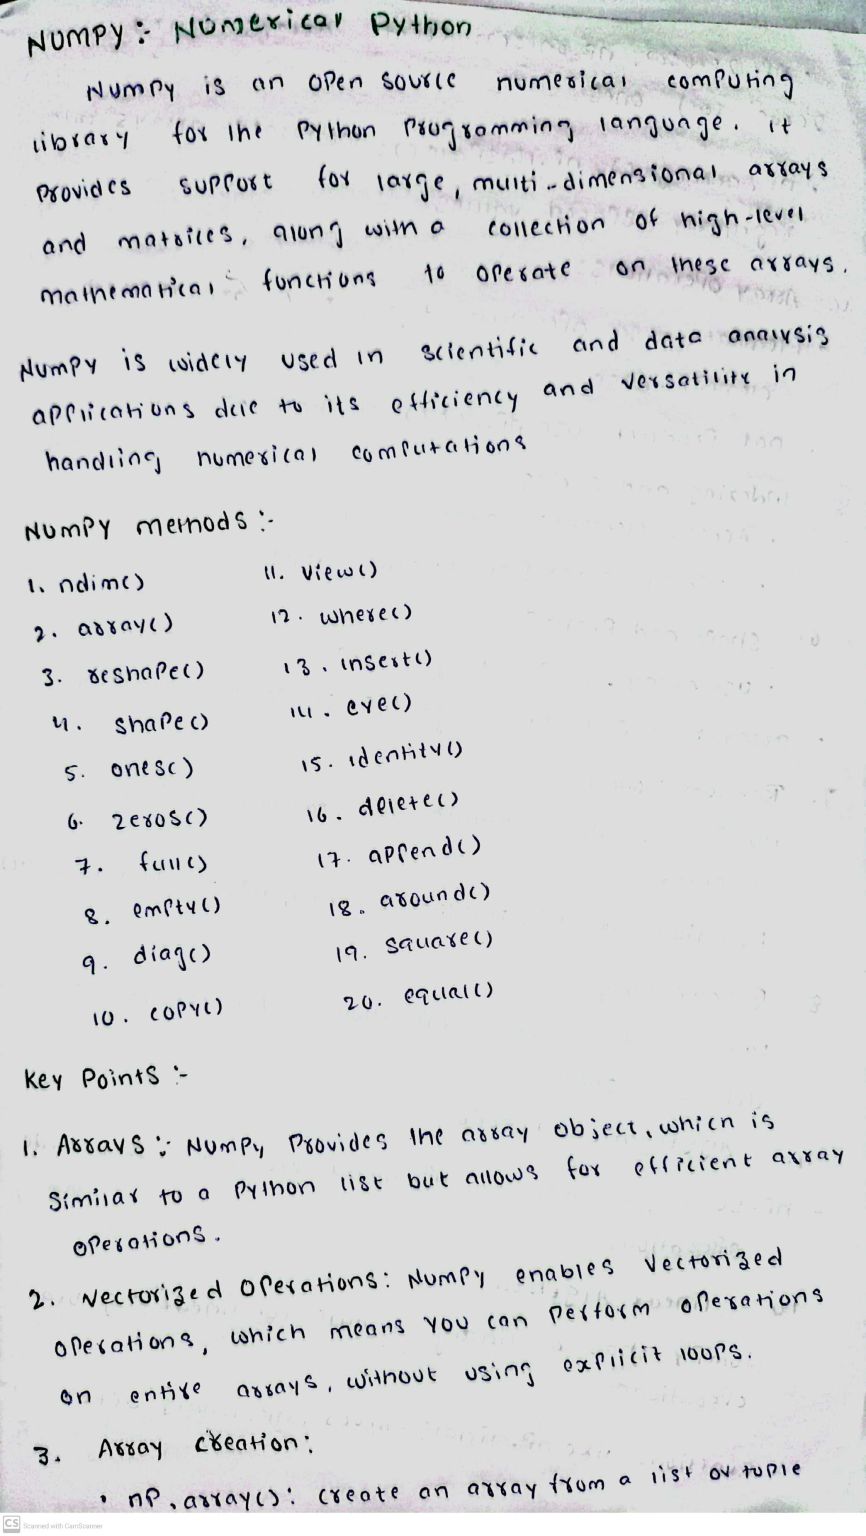 NUMPY :- Numerical Python
NumPy is an open source numerical computing
library for the Python Programming language. it
Provides support for large, multi-dimensional arrays
and matrices, along with a collection of high-level
mathematical functions to operate on these arrays.
NumPy is widely used in scientific and data analysis
applications due to its efficiency and versatility in
handling numerical computations
NumPy methods :-
1. ndim()
2. array()
3. reshape()
4. shape()
5. ones()
6. zeros()
7. full()
8. empty()
9. diag()
10. copy()
11. view()
12. where()
13. insert()
14. eye()
15. identity()
16. delete()
17. append()
18. around()
19. square()
20. equal()
Key Points :-
1. Arrays :- NumPy Provides the array object, which is
Similar to a Python list but allows for efficient array
operations.
2. Vectorized Operations: NumPy enables Vectorized
operations, which means you can perform operations
on entire arrays, without using explicit loops.
3. Array creation:
• np.array(): create an array from a list or tuple
CS Scanned with CamScanner